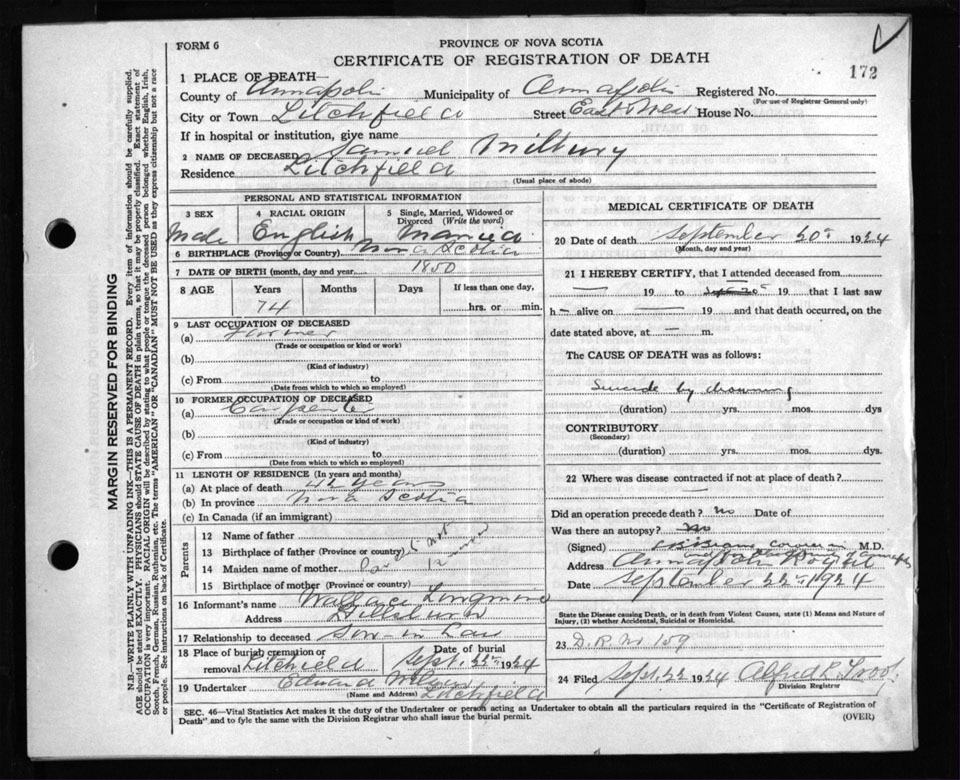 172
FORM 6
PROVINCE OF NOVA SCOTIA
CERTIFICATE OF REGISTRATION OF DEATH
MARGIN RESERVED FOR BINDING
N.B.—WRITE PLAINLY WITH UNFADING INK—THIS IS A PERMANENT RECORD. Every item of information should be carefully supplied.
AGE should be stated EXACTLY. PHYSICIANS should STATE CAUSE OF DEATH in plain terms, so that it may be properly classified. Exact statement of
OCCUPATION is very important. RACIAL ORIGIN will be described by stating to what people or tongue the deceased person belonged whether English, Irish,
Scotch, French, German, Russian, Ruthenian, etc. The terms "AMERICAN" OR "CANADIAN" MUST NOT BE USED as they express citizenship but not a race
or people. See instructions on back of Certificate.
1 PLACE OF DEATH—
County of Annapolis Municipality of Annapolis Registered No.
(For use of Registrar General only)
City or Town Litchfield Street East & West House No.
If in hospital or institution, give name
2 NAME OF DECEASED Samuel Milbury
Residence Litchfield
(Usual place of abode)
PERSONAL AND STATISTICAL INFORMATION
3 SEX Male
4 RACIAL ORIGIN English
5 Single, Married, Widowed or Divorced (Write the word) Married
6 BIRTHPLACE (Province or Country) Nova Scotia
7 DATE OF BIRTH (month, day and year) 1850
8 AGE Years Months Days If less than one day,
74 hrs. or min.
9 LAST OCCUPATION OF DECEASED
(a) Farmer
(Trade or occupation or kind of work)
(b)
(Kind of industry)
(c) From to
(Date from which to which so employed)
10 FORMER OCCUPATION OF DECEASED
(a) Carpenter
(Trade or occupation or kind of work)
(b)
(Kind of industry)
(c) From to
(Date from which to which so employed)
11 LENGTH OF RESIDENCE (In years and months)
(a) At place of death 42 years
(b) In province Nova Scotia
(c) In Canada (if an immigrant)
Parents
12 Name of father
13 Birthplace of father (Province or country)
14 Maiden name of mother
15 Birthplace of mother (Province or Country)
16 Informant's name Wallace Longmire
Address Hillsburn
17 Relationship to deceased Son-in Law
18 Place of burial, cremation or removal Litchfield
Date of burial Sept. 22nd 1924
19 Undertaker Edward
(Name and Address) Litchfield
MEDICAL CERTIFICATE OF DEATH
20 Date of death September 20th 1924
(Month, day and year)
21 I HEREBY CERTIFY, that I attended deceased from
— 19 to 19 that I last saw
h— alive on — 19 and that death occurred, on the
date stated above, at — m.
The CAUSE OF DEATH was as follows:
Suicide by drowning
(duration) yrs. mos. dys
CONTRIBUTORY
(Secondary)
(duration) yrs. mos. dys.
22 Where was disease contracted if not at place of death?
—
Did an operation precede death? No Date of
Was there an autopsy? No
(Signed) M.D.
Address Annapolis Royal
Date September 22nd 1924
State the Disease causing Death, or in death from Violent Causes, state (1) Means and Nature of
Injury, (2) whether Accidental, Suicidal or Homicidal.
23 D.R. No 159
24 Filed Sept. 22 1924 Alfred
Division Registrar
SEC. 46—Vital Statistics Act makes it the duty of the Undertaker or person acting as Undertaker to obtain all the particulars required in the "Certificate of Registration of
Death" and to fyle the same with the Division Registrar who shall issue the burial permit.
(OVER)